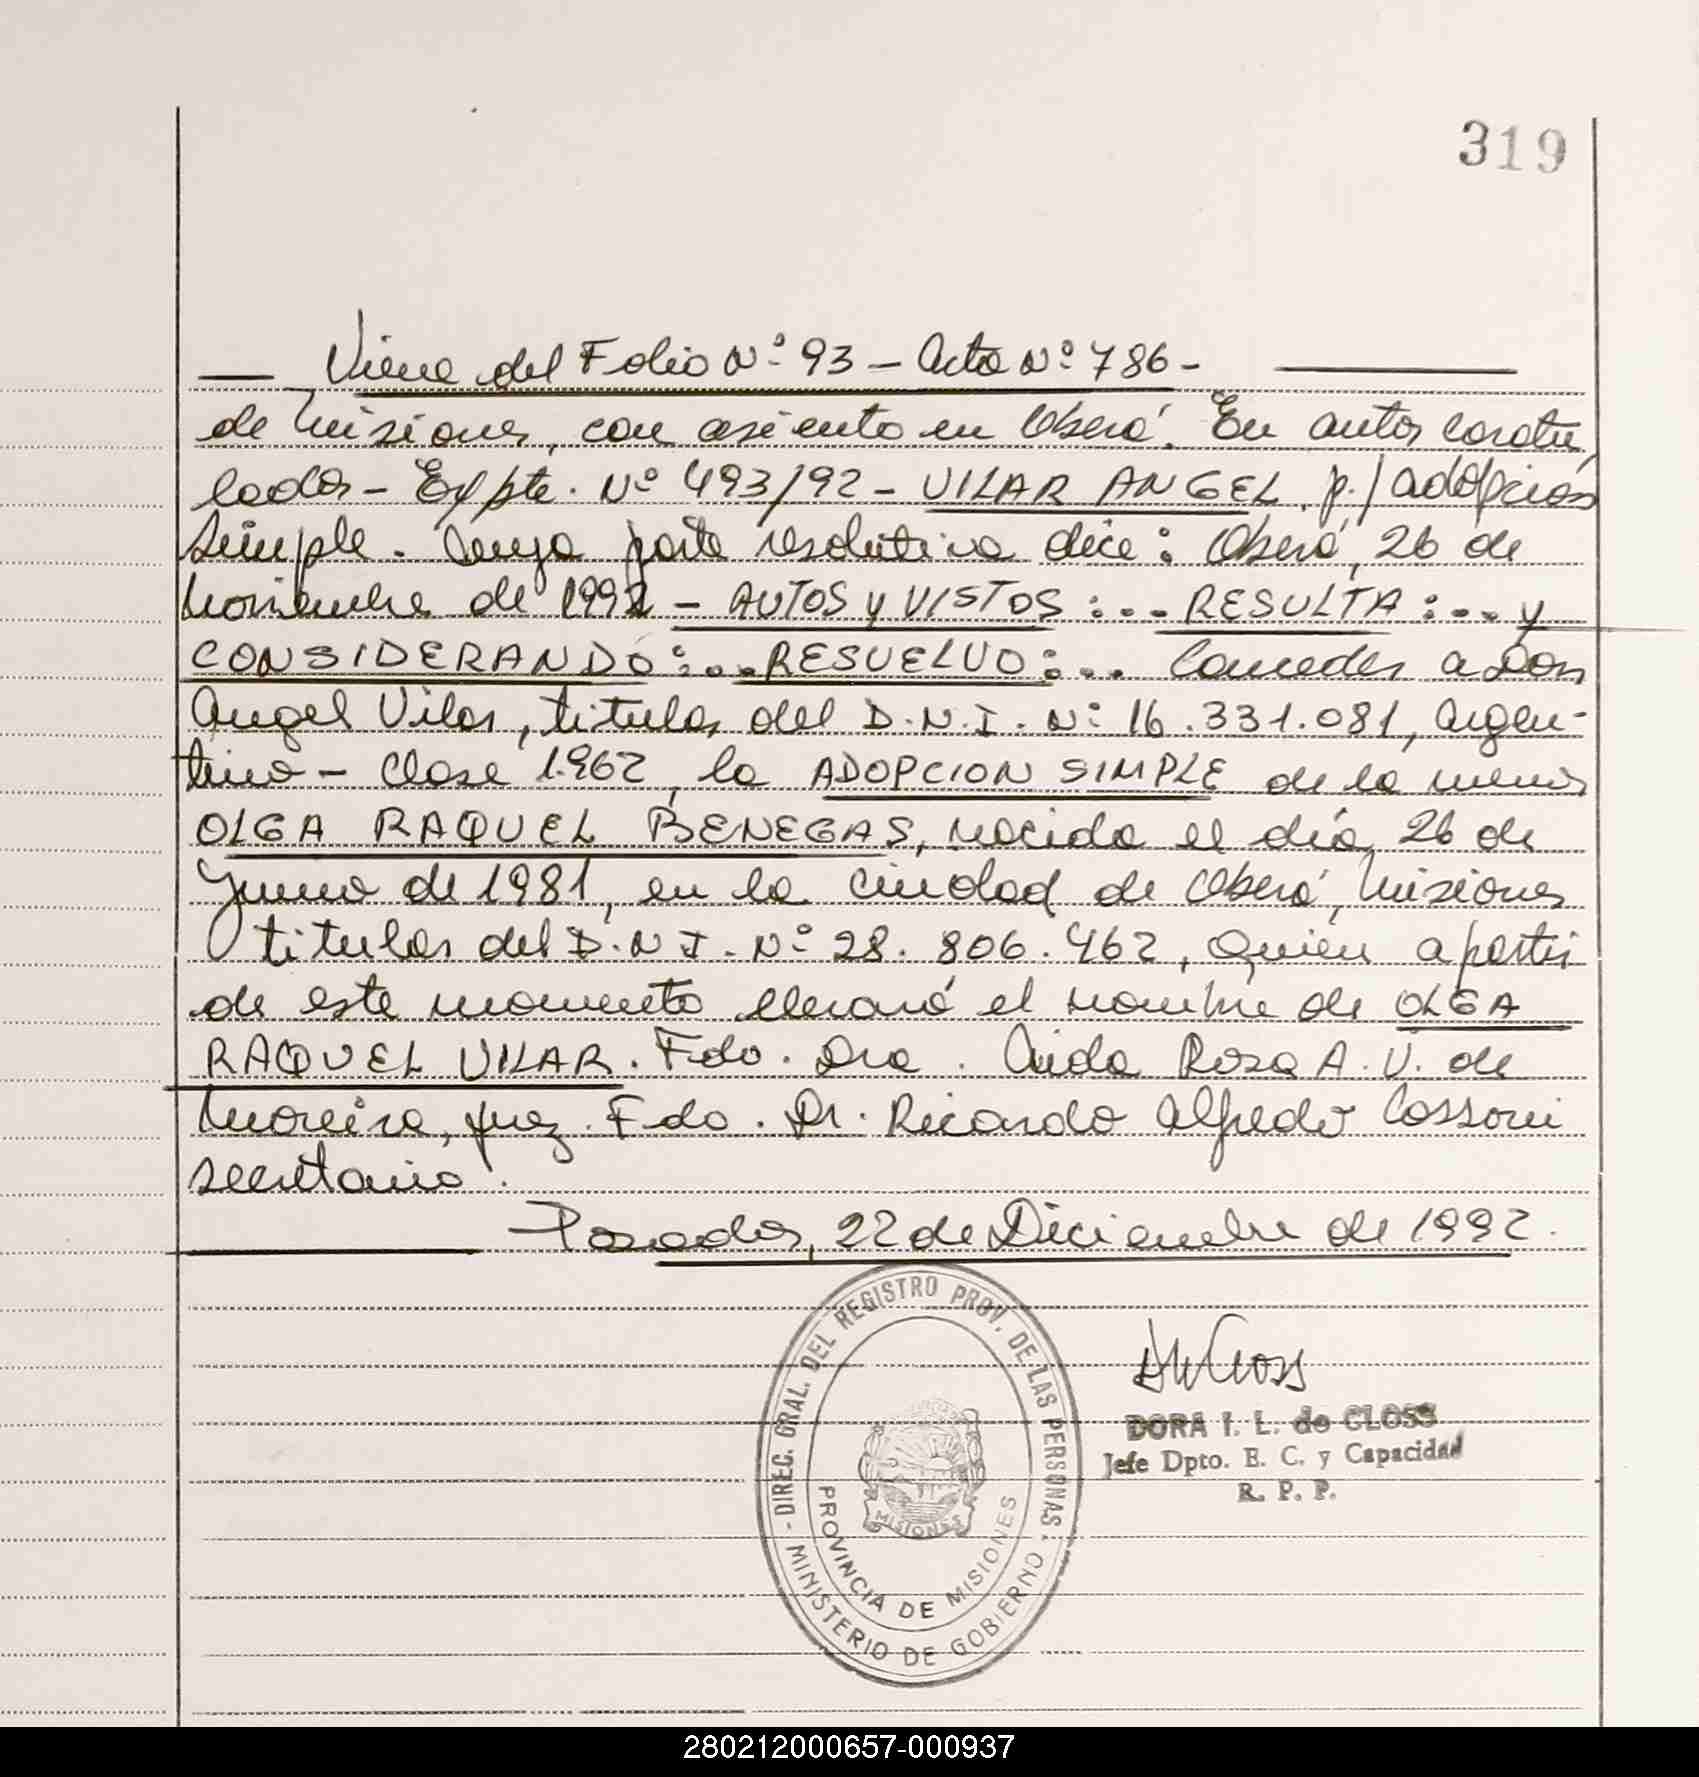 319
Viene del Folio Nº 93 - Acta Nº 786 -
de Misiones, con asiento en Oberá. En autos caratu
lados - Expte. Nº 493/92 - VILAR ANGEL p./ adopción
Simple. Cuya parte resolutiva dice: Oberá, 26 de
Noviembre de 1992 - AUTOS y VISTOS:... RESULTA:... y
CONSIDERANDO:... RESUELVO:... Conceder a Don
Angel Vilar, titular del D.N.I. Nº 16.331.081, argen-
tino - Clase 1.962, la ADOPCION SIMPLE de la menor
OLGA RAQUEL BENEGAS, nacida el día 26 de
Junio de 1981, en la ciudad de Oberá, Misiones
titular del D.N.I. Nº 28.806.462, quién a partir
de este momento llevará el nombre de OLGA
RAQUEL VILAR. Fdo. Dra. Aida Rosa A. V. de
Moreira, Juez. Fdo. Dr. Ricardo Alfredo Cassoni
secretario.
Posadas, 22 de Diciembre de 1992.
- DIREC. GRAL. DEL REGISTRO PROV. DE LAS PERSONAS -
MINISTERIO DE GOBIERNO
PROVINCIA DE MISIONES
MISIONES
DORA I. L. de CLOSS
Jefe Dpto. E. C. y Capacidad
R. P. P.
280212000657-000937